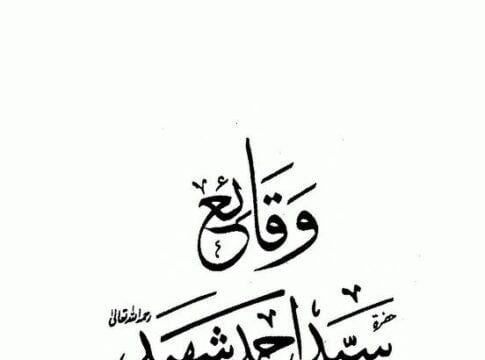 وقائع
حضرة سید احمد شہید رحمہ اللہ تعالیٰ